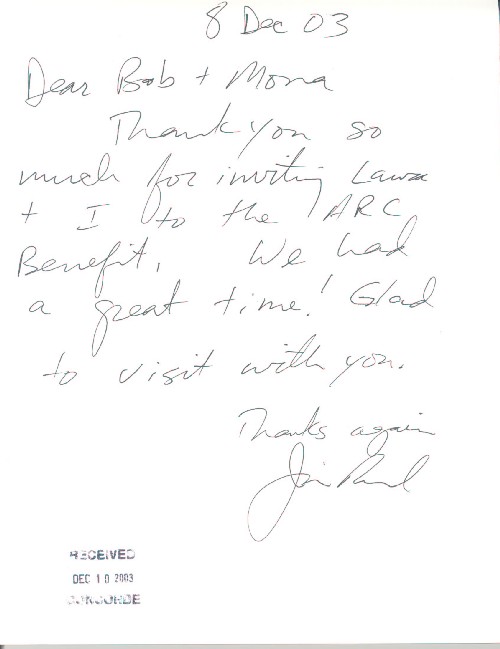 8 Dec 03
Dear Bob + Mona
Thank you so
much for inviting Laura
+ I to the ARC
Benefit. We had
a great time! Glad
to visit with you.
Thanks again
Jim
RECEIVED
DEC 10 2003
CONCORDE